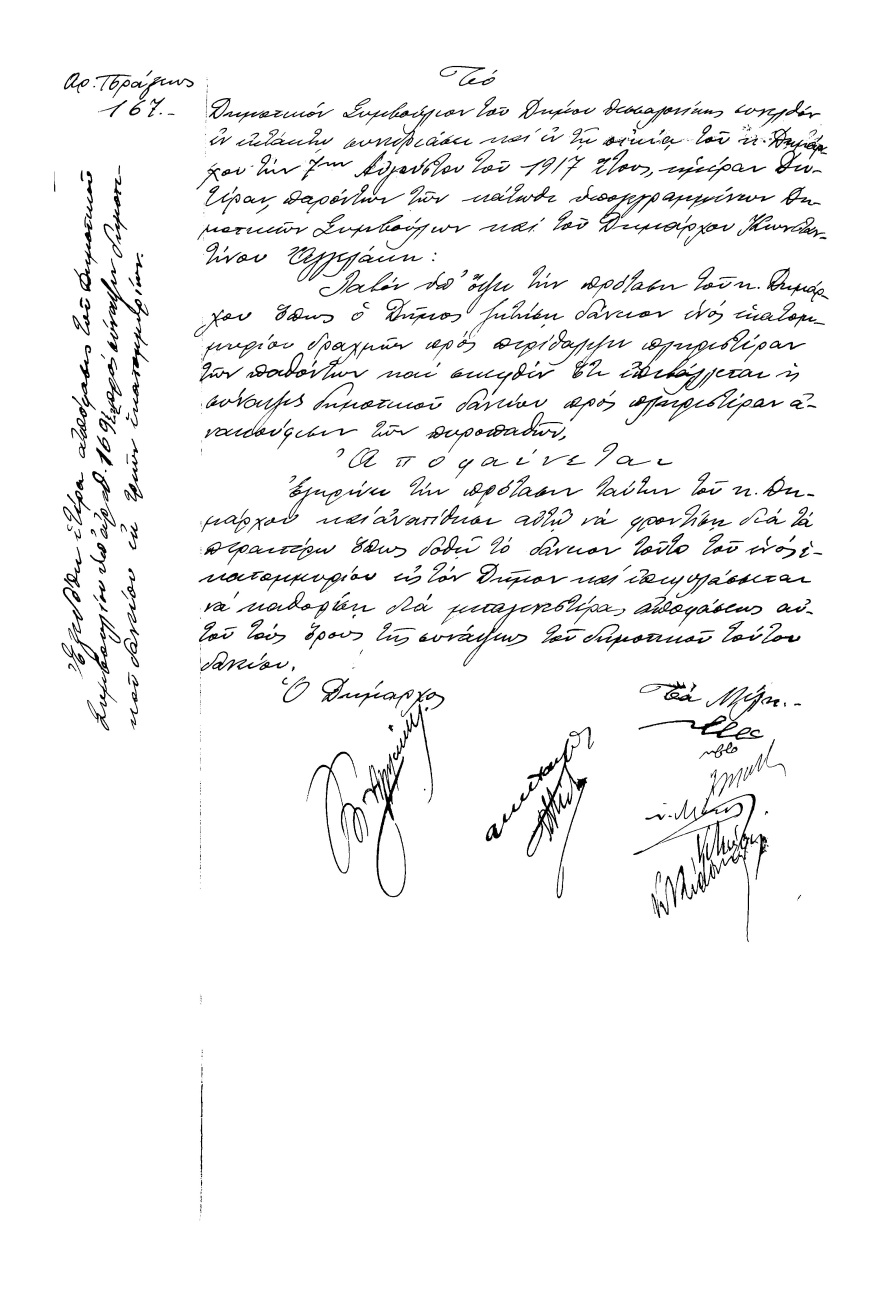 Αρ. Πράξεως
167.-
Τό
Δημοτικόν Συμβούλιον τοῦ Δήμου Θεσσαλονίκης συνελθόν
ἐν ἐκτάκτῳ συνεδριάσει καί ἐν τῇ οἰκίᾳ τοῦ κ. Δημάρ-
χου τήν 7ην Αὐγούστου τοῦ 1917 ἔτους, ἡμέραν Δευ-
τέραν, παρόντων τῶν κάτωθι ὑπογεγραμμένων Δη-
μοτικῶν Συμβούλων καί τοῦ Δημάρχου Κωνσταν-
τίνου Ἀγγελάκη:
Λαβόν ὑπ' ὄψει τήν πρότασιν τοῦ κ. Δημάρ-
χου ὅπως ὁ Δῆμος ζητήσῃ δάνειον ἑνός ἑκατομ-
μυρίου δραχμῶν πρός περίθαλψιν πληρεστέραν
τῶν παθόντων καί σκεφθέν ὅτι ἐπιβάλλεται ἡ
σύναψις δημοτικοῦ δανείου πρός πληρεστέραν ἀ-
νακούφισιν τῶν πυροπαθῶν,
Ἀποφαίνεται
Ἐγκρίνει τήν πρότασιν ταύτην τοῦ κ. Δη-
μάρχου καί ἀνατίθησι αὐτῷ νά φροντίσῃ διά τά
περαιτέρω ὅπως δοθῇ τό δάνειον τοῦτο τοῦ ἑνός ἑ-
κατομμυρίου εἰς τόν Δῆμον καί ἐπιφυλάσσεται
νά καθορίσῃ διά μεταγενεστέρας ἀποφάσεως αὐ-
τοῦ τούς ὅρους τῆς συνάψεως τοῦ δημοτικοῦ τούτου
δανείου.
Ὁ Δήμαρχος
Τά Μέλη.-
Ἐξεδόθη ἑτέρα ἀπόφασις τοῦ Δημοτικοῦ
Συμβουλίου ὑπ' ἀριθ. 169 πρός σύναψιν δημοτι-
κοῦ δανείου ἐκ τριῶν ἑκατομμυρίων.